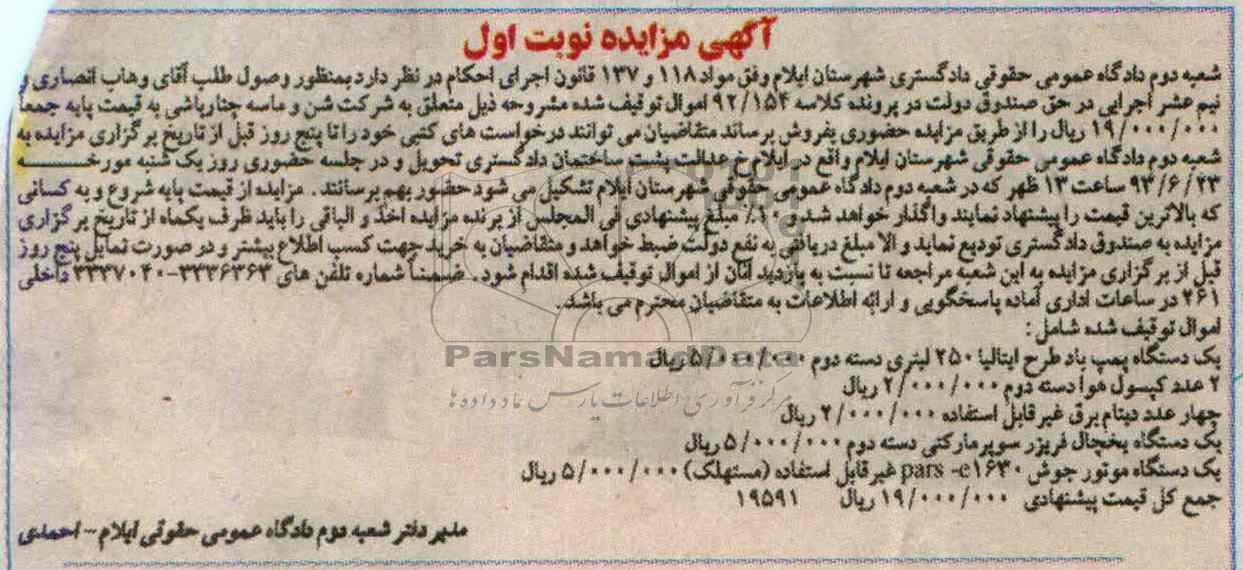 آگهی مزایده نوبت اول
شعبه دوم دادگاه عمومی حقوقی دادگستری شهرستان ایلام وفق مواد ۱۱۸ و ۱۳۷ قانون اجرای احکام در نظر دارد بمنظور وصول طلب آقای وهاب انصاری و
نیم عشر اجرایی در حق صندوق دولت در پرونده کلاسه ۹۲/۱۵۴ اموال توقیف شده مشروحه ذیل متعلق به شرکت شن و ماسه چنارباشی به قیمت پایه جمعاً
۱۹/۰۰۰/۰۰۰ ریال را از طریق مزایده حضوری بفروش برساند متقاضیان می توانند درخواست های کتبی خود را تا پنج روز قبل از تاریخ برگزاری مزایده به
شعبه دوم دادگاه عمومی حقوقی شهرستان ایلام واقع در ایلام خ عدالت پشت ساختمان دادگستری تحویل و در جلسه حضوری روز یک شنبه مورخه
۹۳/۶/۲۳ ساعت ۱۳ ظهر که در شعبه دوم دادگاه عمومی حقوقی شهرستان ایلام تشکیل می شود حضور بهم برسانند . مزایده از قیمت پایه شروع و به کسانی
که بالاترین قیمت را پیشنهاد نمایند واگذار خواهد شد و ۱۰٪ مبلغ پیشنهادی فی المجلس از برنده مزایده اخذ و الباقی را باید ظرف یکماه از تاریخ برگزاری
مزایده به صندوق دادگستری تودیع نماید و الا مبلغ دریافتی به نفع دولت ضبط خواهد و متقاضیان به خرید جهت کسب اطلاع بیشتر و در صورت تمایل پنج روز
قبل از برگزاری مزایده به این شعبه مراجعه تا نسبت به بازدید آنان از اموال توقیف شده اقدام شود . ضمناً شماره تلفن های ۳۳۳۶۳۶۳-۳۳۳۷۰۴۰ داخلی
۲۶۱ در ساعات اداری آماده پاسخگویی و ارائه اطلاعات به متقاضیان محترم می باشد.
اموال توقیف شده شامل :
یک دستگاه پمپ باد طرح ایتالیا ۲۵۰ لیتری دسته دوم ۵/۰۰۰/۰۰۰ ریال
ParsNamadData
۲ عدد کپسول هوا دسته دوم ۲/۰۰۰/۰۰۰ ریال
مرکز فرآوری اطلاعات پارس نماد داده ها
چهار عدد دینام برق غیر قابل استفاده ۲/۰۰۰/۰۰۰ ریال
یک دستگاه یخچال فریزر سوپر مارکتی دسته دوم ۵/۰۰۰/۰۰۰ ریال
یک دستگاه موتور جوش pars -e۱۶۳۰ غیر قابل استفاده (مستهلک) ۵/۰۰۰/۰۰۰ ریال
جمع کل قیمت پیشنهادی ۱۹/۰۰۰/۰۰۰ ریال ۱۹۵۹۱
مدیر دفتر شعبه دوم دادگاه عمومی حقوقی ایلام - احمدی